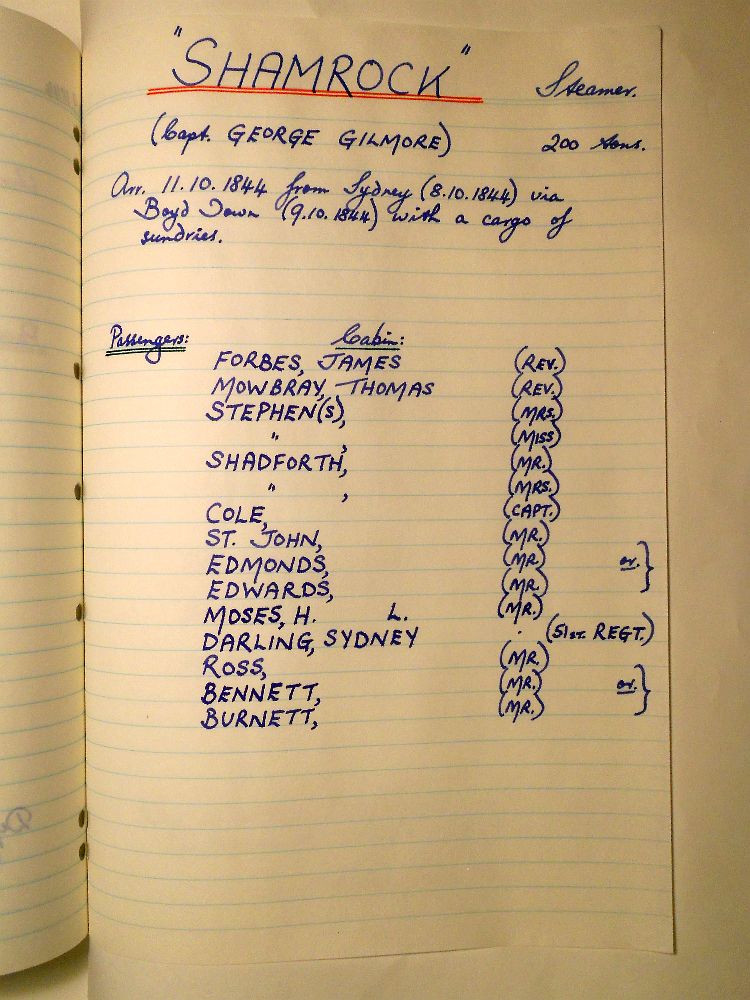 "SHAMROCK" Steamer.
(Capt. GEORGE GILMORE) 200 tons.
Arr. 11.10.1844 from Sydney (8.10.1844) via
Boyd Town (9.10.1844) with a cargo of
sundries.
Passengers: Cabin:
FORBES, JAMES (REV.)
MOWBRAY, THOMAS (REV.)
STEPHEN(S), (MRS.)
" , (MISS)
SHADFORTH, (MR.)
" , (MRS.)
COLE, (CAPT.)
ST. JOHN, (MR.)
EDMONDS, (MR.) or. }
EDWARDS, (MR.)
MOSES, H. L. (MR.)
DARLING, SYDNEY . (51ST. REGT.)
ROSS, (MR.)
BENNETT, (MR.) or. }
BURNETT, (MR.)